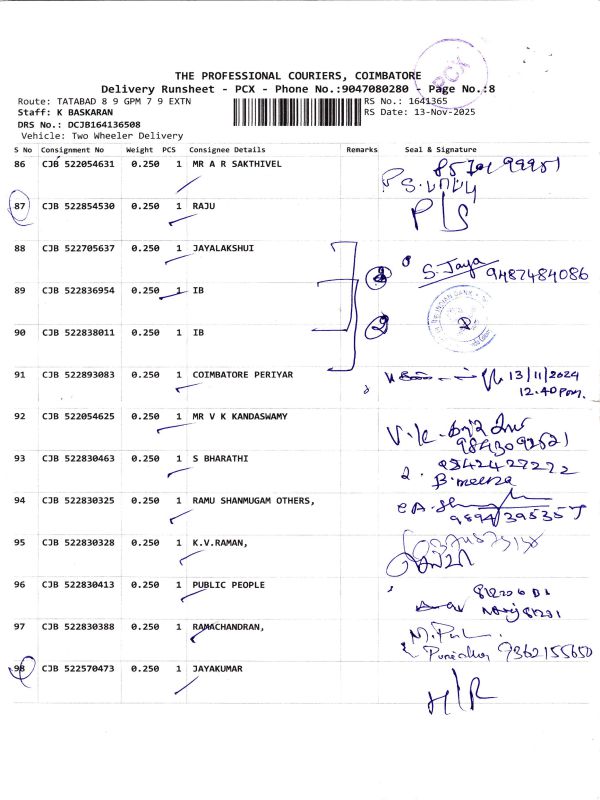 PCX
THE PROFESSIONAL COURIERS, COIMBATORE
Delivery Runsheet - PCX - Phone No.:9047080280 - Page No.:8
Route: TATABAD 8 9 GPM 7 9 EXTN RS No.: 1641365
Staff: K BASKARAN RS Date: 13-Nov-2025
DRS No.: DCJB164136508
Vehicle: Two Wheeler Delivery
S No Consignment No Weight PCS Consignee Details Remarks Seal & Signature
86 CJB 522054631 0.250 1 MR A R SAKTHIVEL
87 CJB 522854530 0.250 1 RAJU P/S
88 CJB 522705637 0.250 1 JAYALAKSHUI S. Jaya 9487484086
89 CJB 522836954 0.250 1 IB
90 CJB 522838011 0.250 1 IB 2
91 CJB 522893083 0.250 1 COIMBATORE PERIYAR 13/11/2024
12.40pm.
92 CJB 522054625 0.250 1 MR V K KANDASWAMY V.K.
93 CJB 522830463 0.250 1 S BHARATHI 2.
B.meena
94 CJB 522830325 0.250 1 RAMU SHANMUGAM OTHERS,
95 CJB 522830328 0.250 1 K.V.RAMAN,
96 CJB 522830413 0.250 1 PUBLIC PEOPLE
97 CJB 522830388 0.250 1 RAMACHANDRAN,
7362155650
98 CJB 522570473 0.250 1 JAYAKUMAR H/R